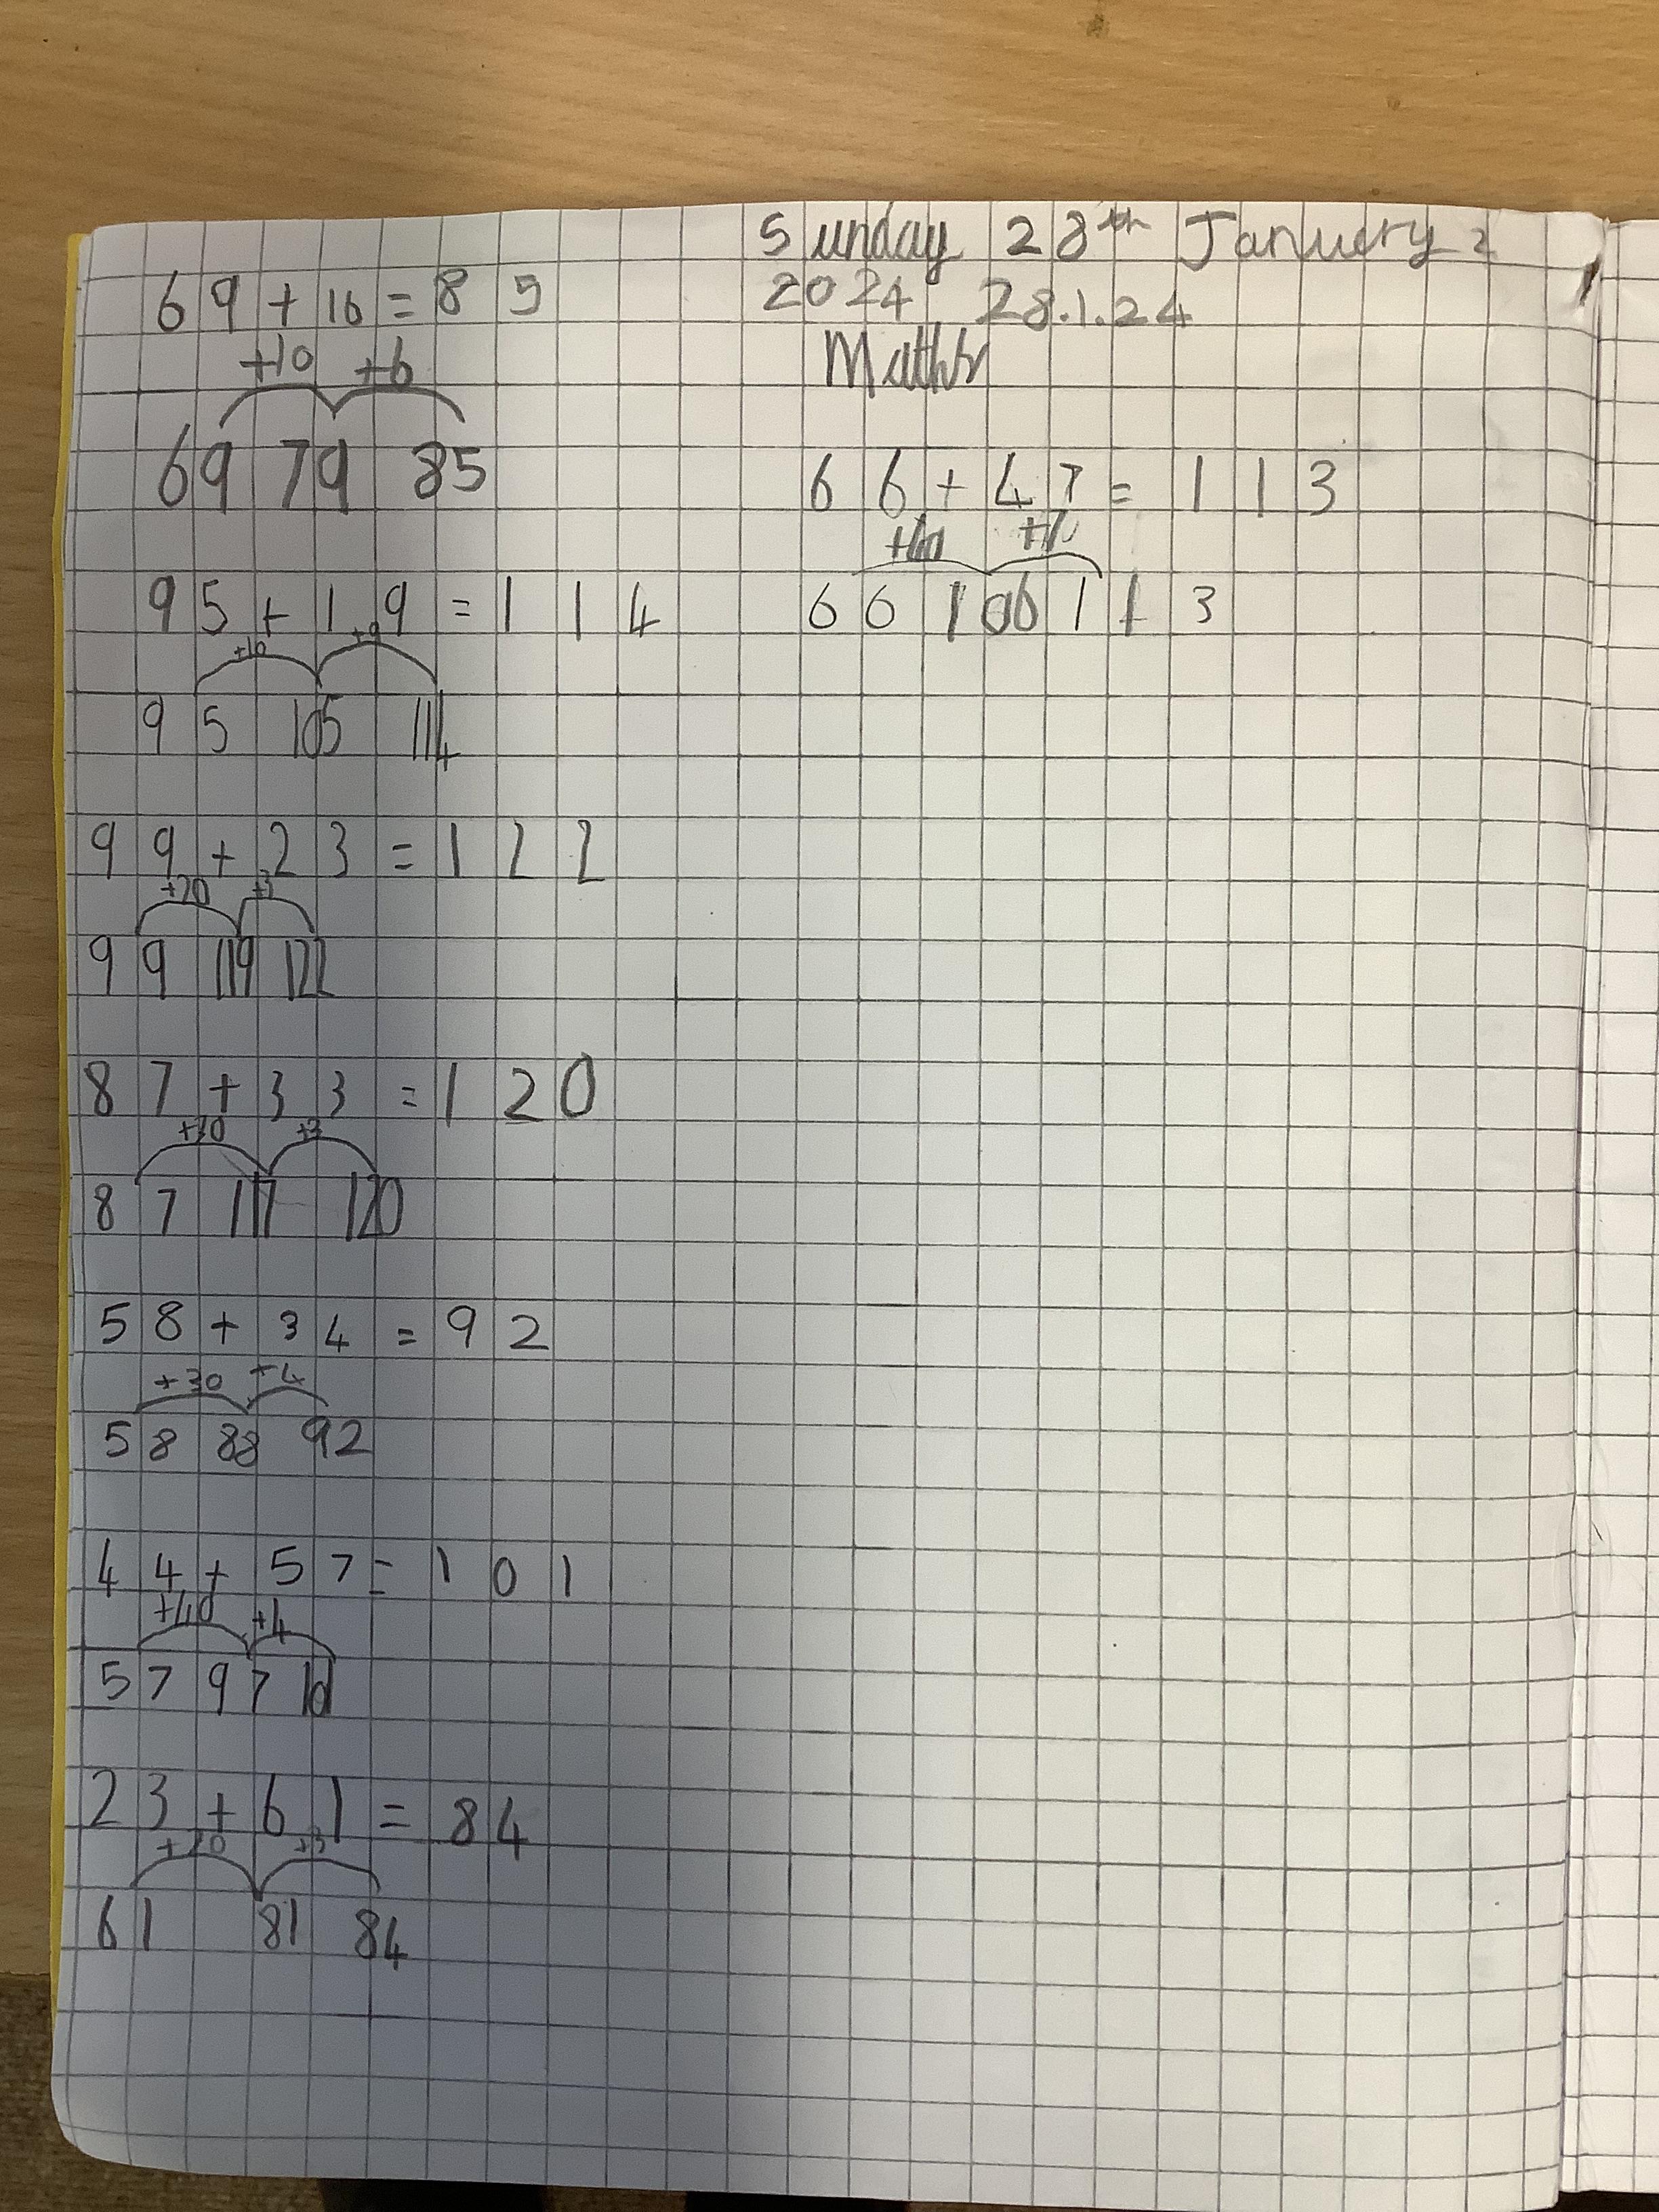 Sunday 28th January 2
2024 28.1.24
Maths
69 + 16 = 85
+10 +6
69 79 85
95 + 19 = 114
+10 +9
95 105 114
99 + 23 = 122
+20 +3
99 119 122
87 + 33 = 120
+30 +3
87 117 120
58 + 34 = 92
+30 +4
58 88 92
44 + 57 = 101
+40 +4
57 97 101
23 + 61 = 84
+20 +3
61 81 84
66 + 47 = 113
+40
66 106 113